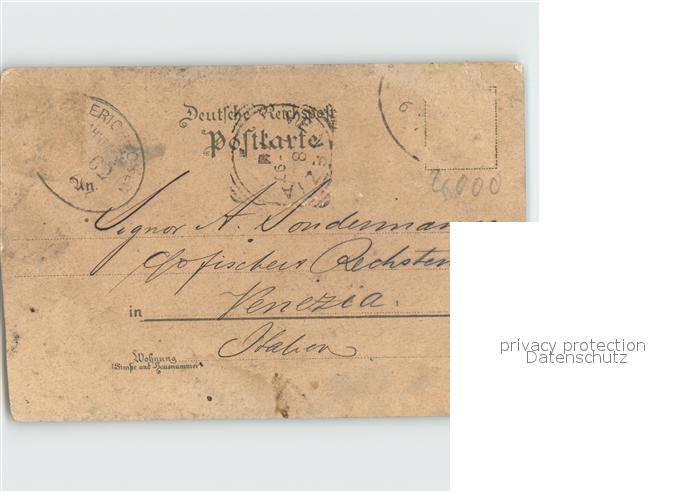 Deutsche Reichspost
Postkarte
An
Signor A. Sondermann
c/o Fischer Rechsten
in Venezia.
Italien
Wohnung
(Straße und Hausnummer)
4000
privacy protection
Datenschutz